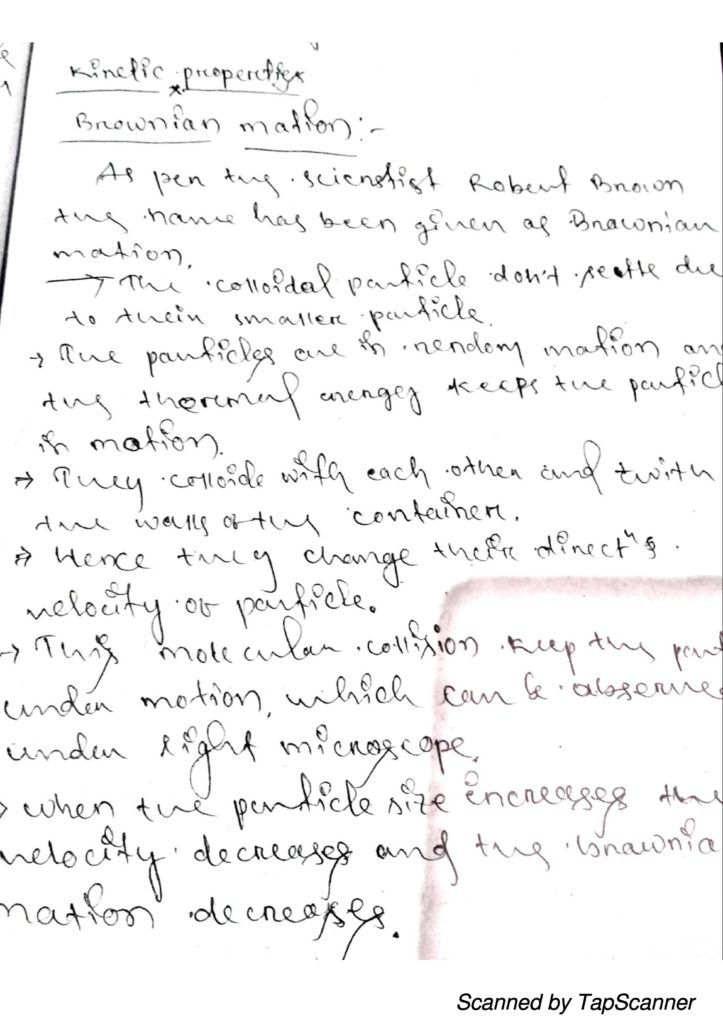 Kinetic properties
Brownian mation:-
As per the scienstist Robert Brown
the name has been given as Brawonian
mation.
→ The colloidal particle don't settle due
to their smaller particle.
→ The particles are in rendom mation an
the thoremal energy keeps the partic
in mation.
→ They colloide with each other and twith
the walls of the container.
→ Hence they change their directⁿ &
velocity of particle.
→ This molecular collision keep the part
under motion, which can be observe
under light microscope.
→ when the particle size increases the
velocity decreases and the brawnia
mation decreases.
Scanned by TapScanner